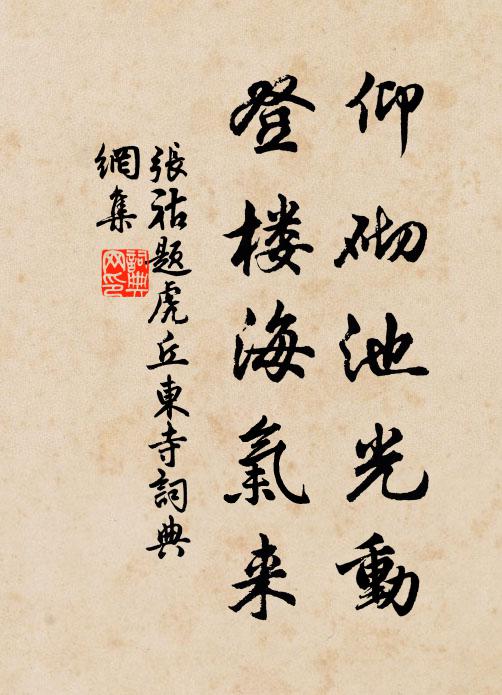 仰砌池光動
登楼海氣来
張祜題虎丘東寺詞典
網集
詞典网印